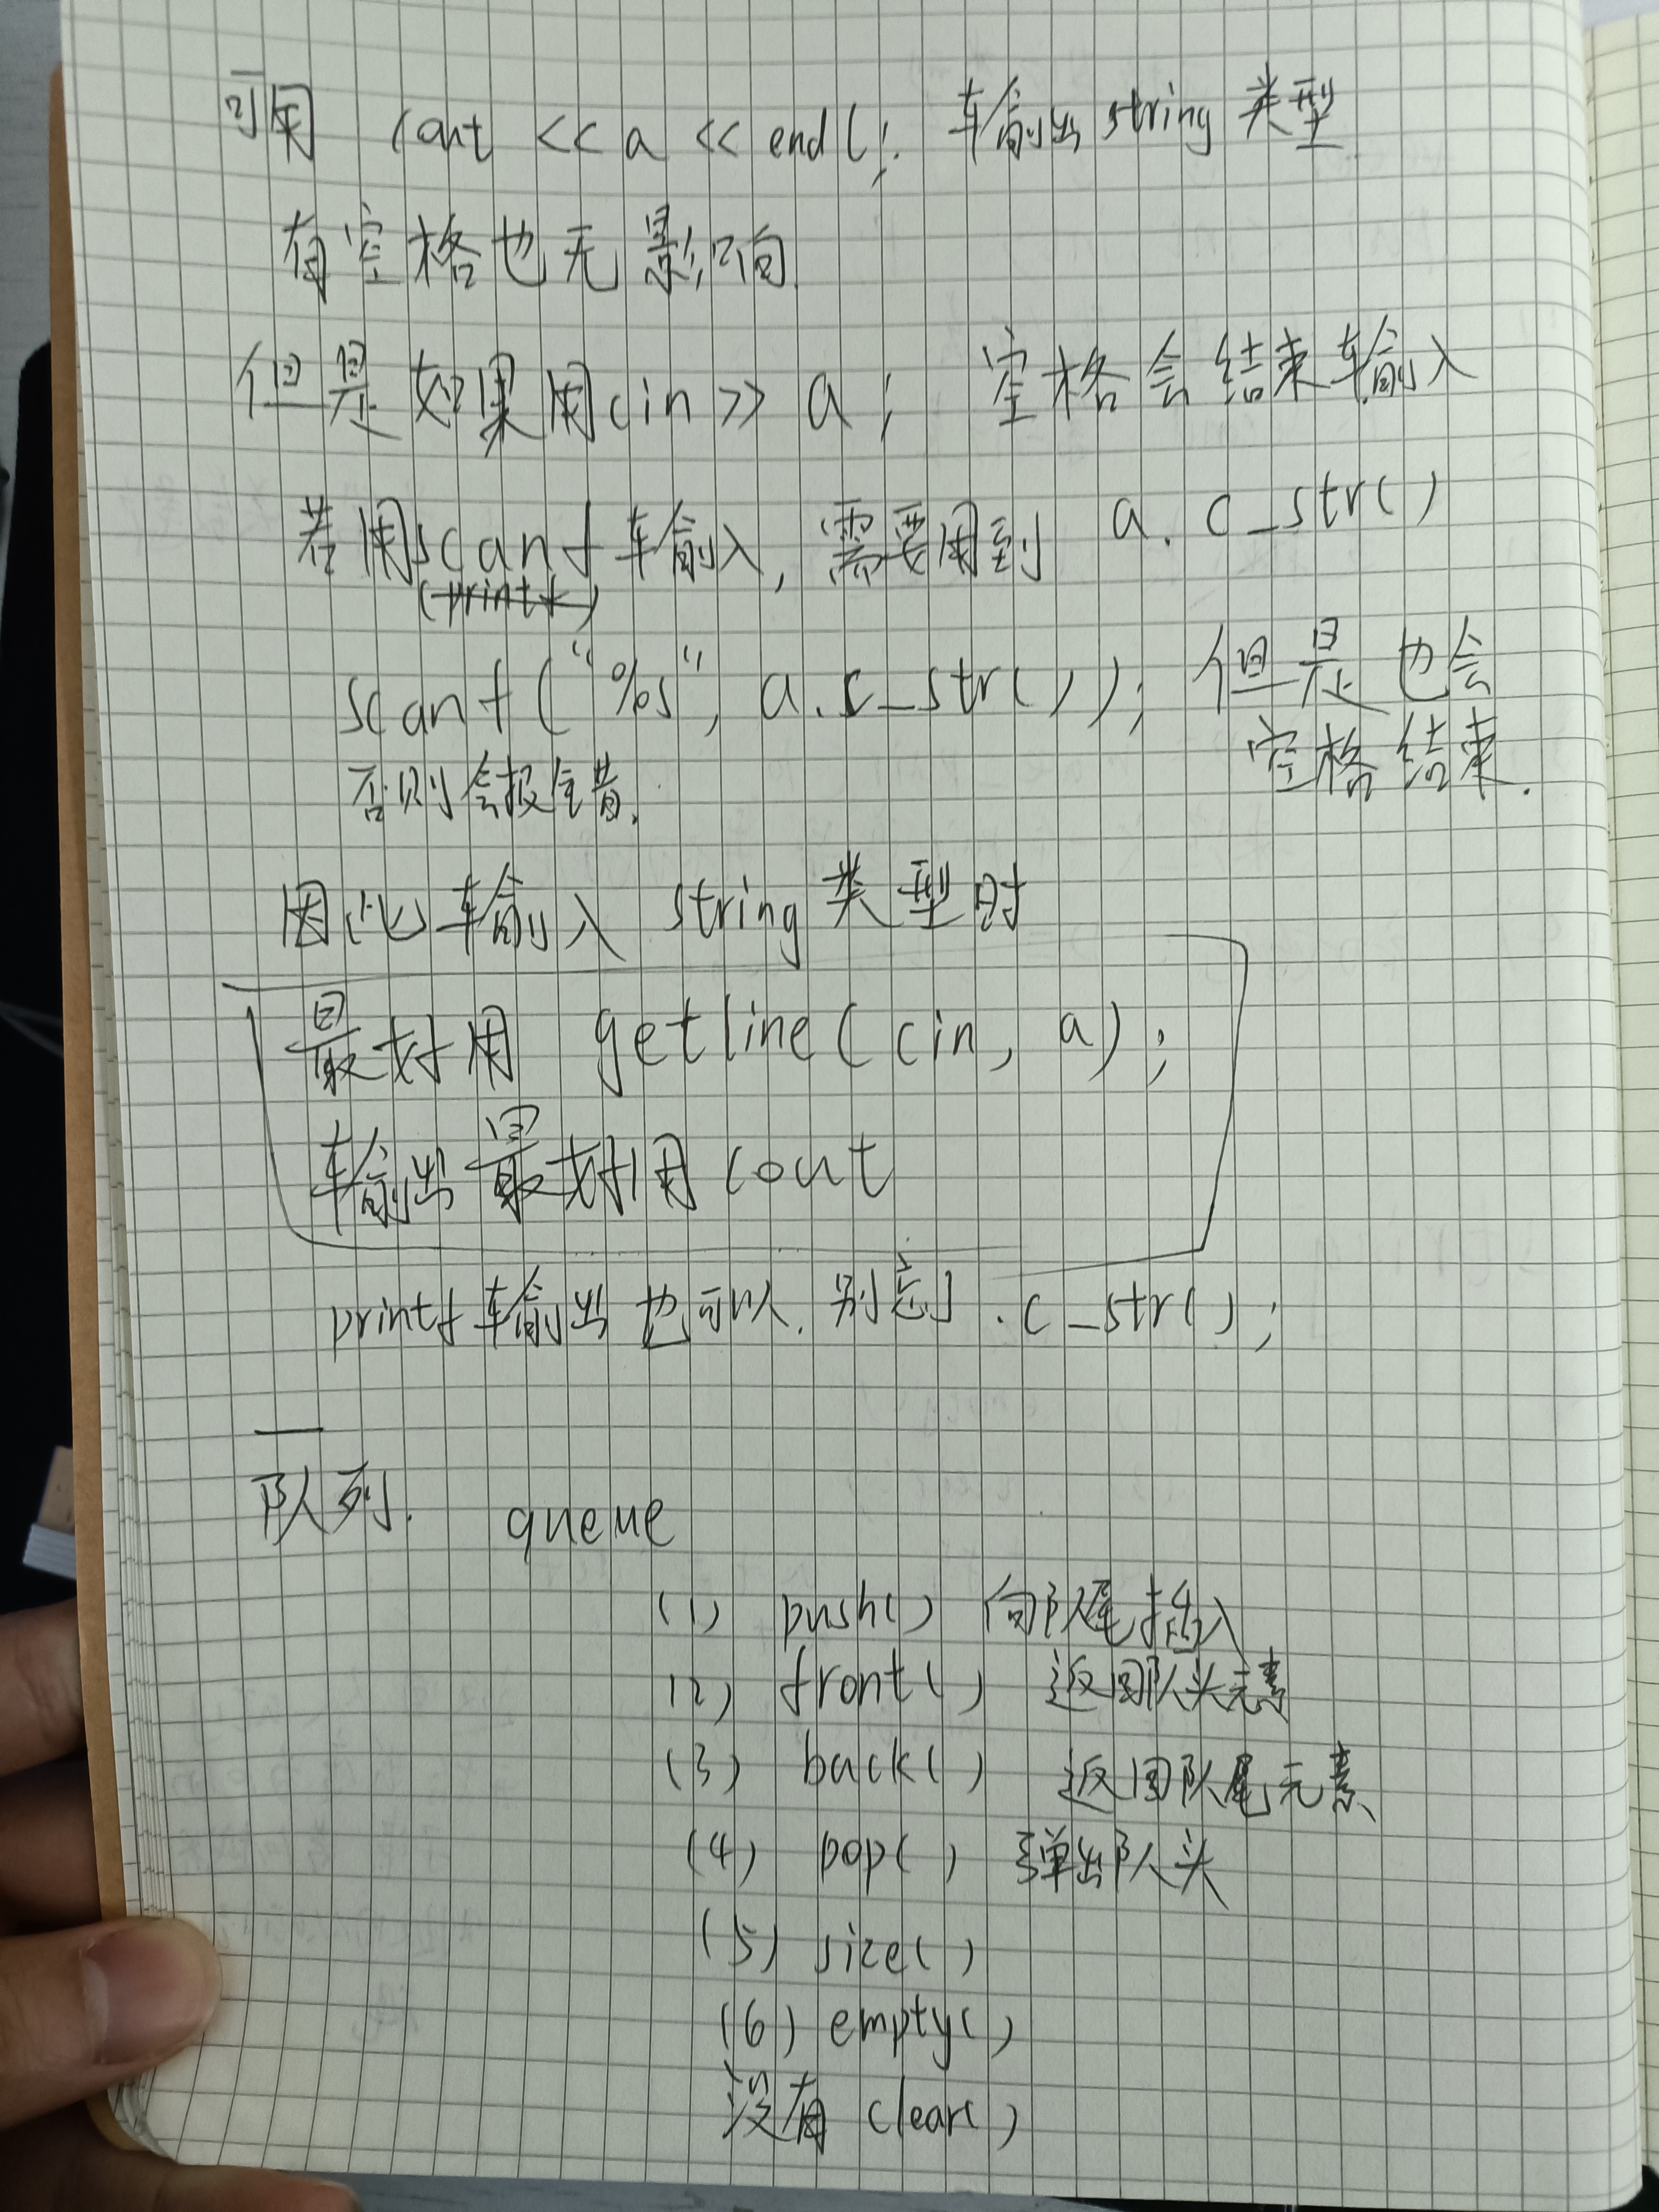 可用 cout << a << endl; 输出string类型
有空格也无影响.
但是如果用cin >> a; 空格会结束输入
若用scanf输入,需要用到 a.c_str()
(printf)
scanf("%s", a.c_str()); 但是也会
空格结束.
否则会报错.
因此输入 string 类型时
最好用 getline(cin, a);
输出最好用cout
printf输出也可以.别忘了.c_str();
队列. queue
(1) push() 向队尾插入
(2) front() 返回队头元素
(3) back() 返回队尾元素
(4) pop() 弹出队头
(5) size()
(6) empty()
没有 clear()